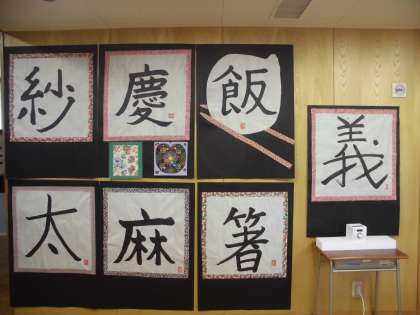 紗 慶 飯
太 麻 箸
義